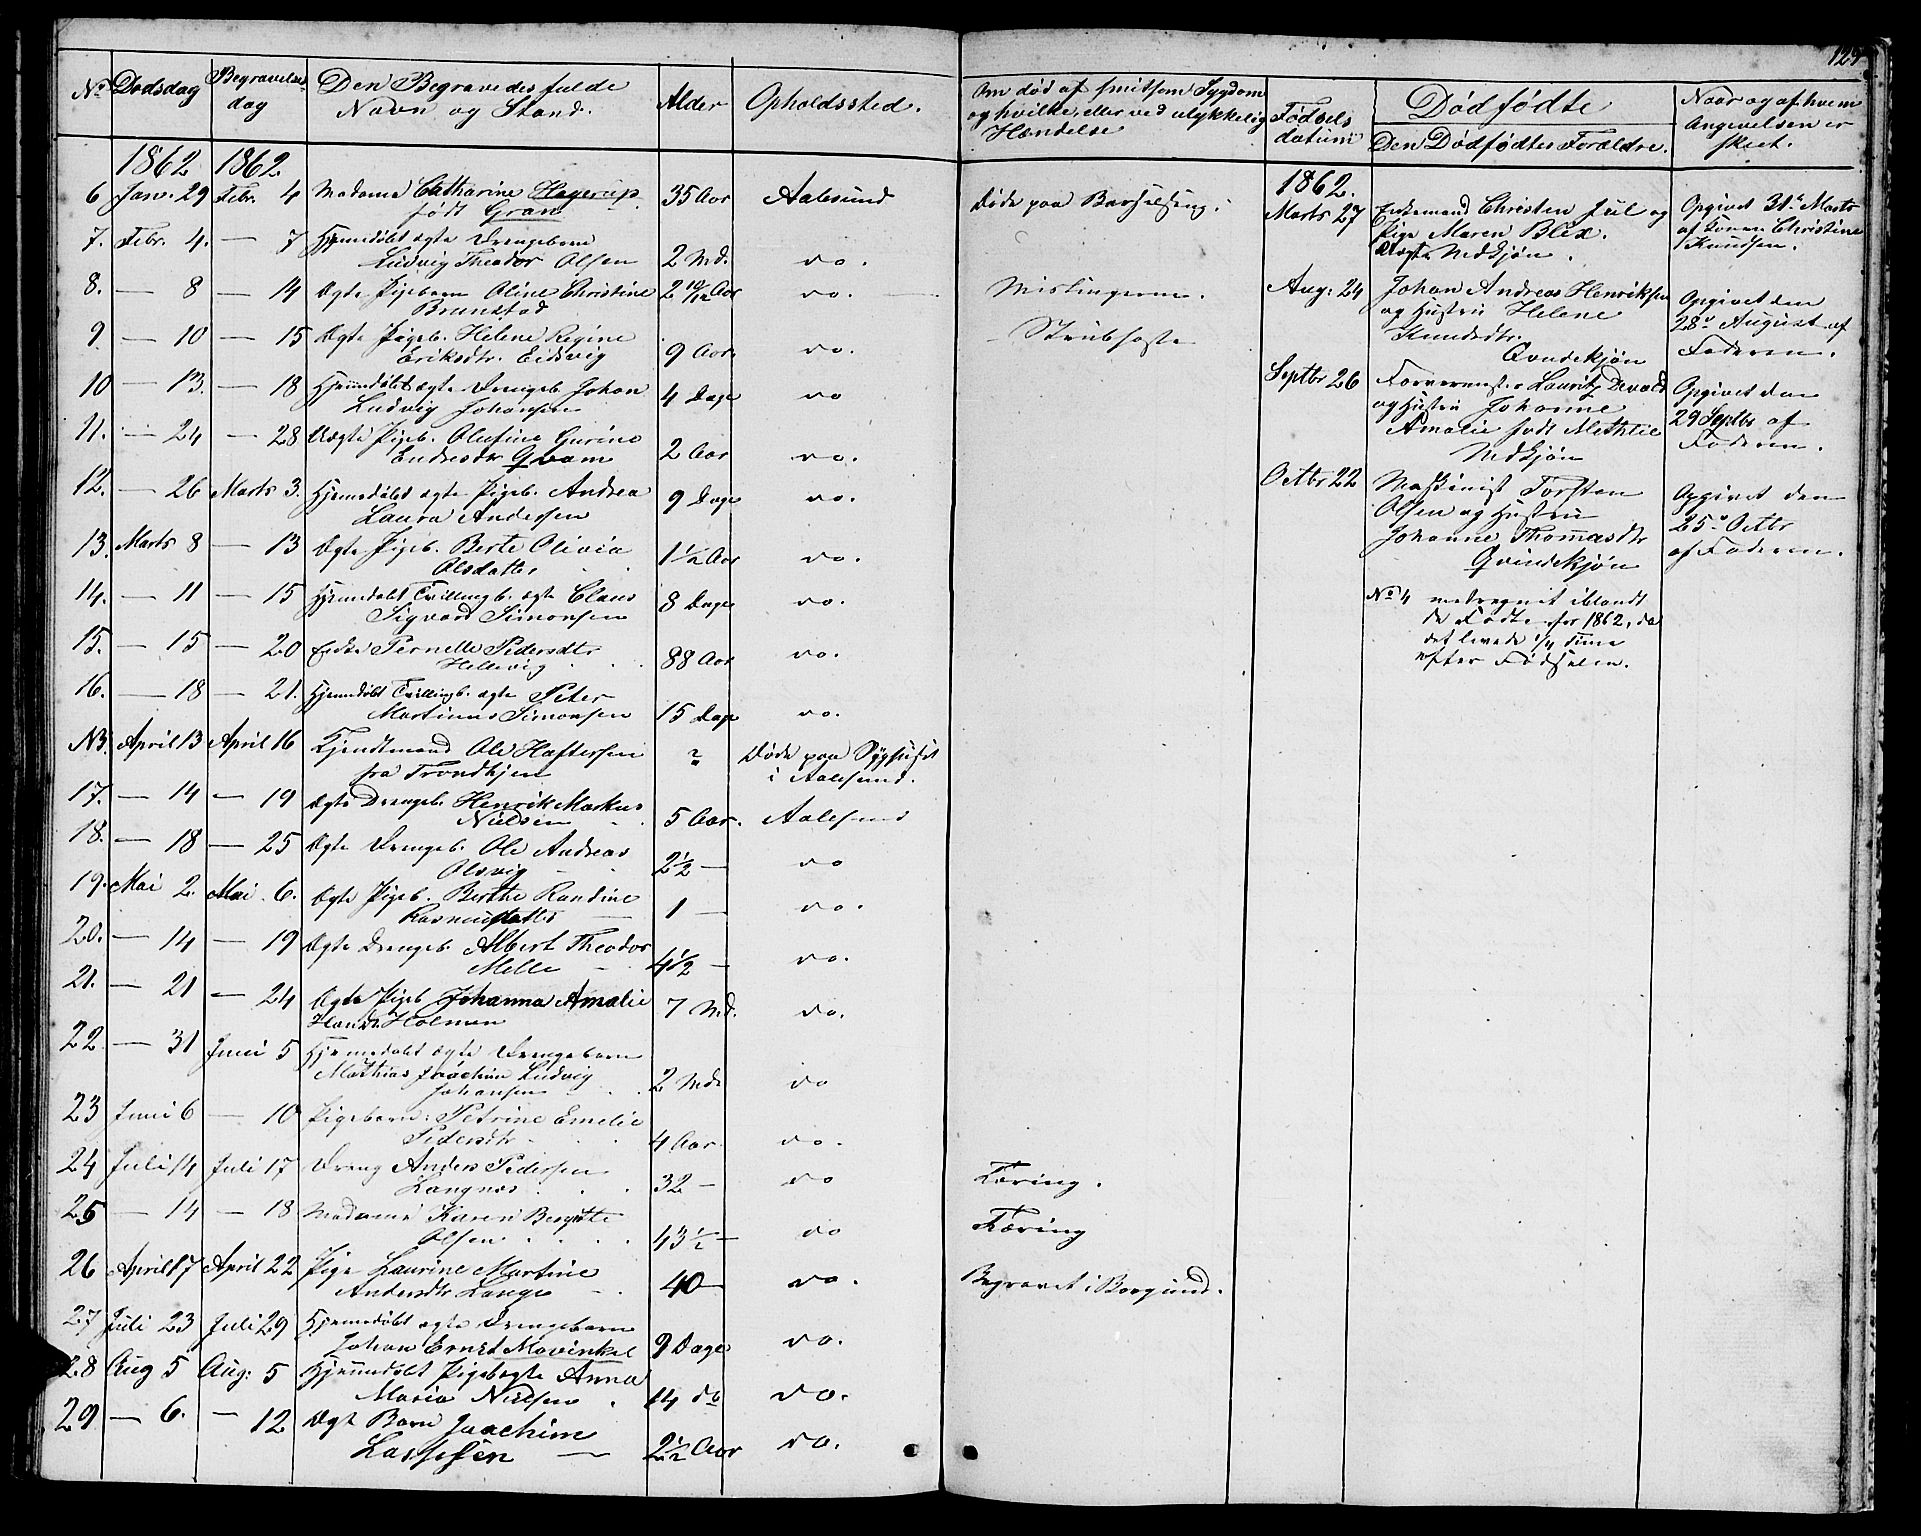 124
No Dødsdag Begravelses Den Begravedes fulde Alder Opholdssted.
dag Navn og Stand.
1862 1862
6 Janr. 29 Febr. 4 Madame Catharine Hagerup 35 Aar Aalesund
født Gran
7. Febr. 4. — 7 Hjemmedøbt ægte Drengebarn
Ludvig Theodor Olsen 2 Md. do.
8. — 8 — 14 Ægte Pigebarn Oline Christine 2 10/12 Aar do.
Brunstad
9. — 10 — 15 Ægte Pigeb. Helene Regine
Eriksdtr. Eidsvig 9 Aar do.
10 — 13. — 18 Hjemmedøbt ægte Drengeb. Johan
Ludvig Johansen 4 Dage do
11. — 24 — 28 Uægte Pigeb. Olufine Gurine
Endresdtr Qvam 2 Aar do.
12. — 26 Marts 3. Hjemmedøbt ægte Pigeb. Andrea
Laura Andersen 9 Dage do.
13. Marts 8 — 13 Ægte Pigeb. Berte Olivia
Olsdatter 1 1/2 Aar do.
14. — 11 — 15 Hjemmedøbt Tvillingb. ægte Claus
Sigvard Simonsen 8 Dage do.
15. — 15 — 20 Enke Pernelle Pedersdtr
Hellevig 88 Aar do.
16. — 18 — 21. Hjemmedøbt Tvillingb. ægte Peter
Martinus Simonsen 15 Dage do.
N3. April 13 April 16 Kjendtmand Ole Haftorsen ? Døde paa Sygehuset
fra Trondhjem i Aalesund.
17. — 14 — 19 Ægte Drengeb. Henrik Markus
Nielsen 5 Aar. Aalesund
18. — 18 — 25 Ægte Drengeb. Ole Andreas
Olsvig 2 1/2 — do
19. Mai 2. Mai 6. Ægte Pigeb. Berthe Randine
Rasmusdatter 1 — do.
20. — 14 — 19 Ægte Drengeb. Albert Theodor
Melle 4 1/2 — do.
21. — 21 — 24 Ægte Pigeb Johanna Amalie 7 Md. do.
Holman
22. — 31 Juni 5 Hjemmedøbt ægte Drengebarn
Mathias Joachim Ludvig
Johansen 2 Mdr do
23 Juni 6 — 10 Pigebarn: Petrine Emelie
Pedersdtr 4 Aar do.
24 Juli 14 Juli 17 Dreng Anders Pedersen
Langnæs 32 — do
25 — 14 — 18 Madame Karen Bergitte
Olsen 43 1/2 — do
26 April 17 April 22 Pige Laurine Martine
Andersdtr Lange 40 — do.
27 Juli 23 Juli 29 Hjemmedøbt ægte Drengebarn
Johan Ernst Mowinkel 9 Dage do.
28 Aug 5 Aug: 5 Hjemmedøbt Pigeb ægte Anna
Maria Nielsen 14 do do.
29 — 6. — 12 Ægte Barn Joachim
Lassesen 2 1/2 Aar do.
Om død af smitsom Sygdom
og hvilke, eller ved ulykkelig
Hændelse
Døde paa Barselseng.
Meslingerne.
Strubehoste
Tæring.
Tæring
Begravet i Borgund.
Fødsels
datum
Dødfødte
Den Dødfødtes Forældre.
Naar og af hvem
Angivelsen er
skeet.
1862.
Marts 27 Enkemand Christen Juul og
Pige Maren Blix.
Uægte Mdkjøn.
Opgivet 31te Marts
af Konen Christine
Knudsen.
Aug: 24 Johan Andreas Henriksen
og Hustru Helene
Knudsdtr.
Qvindekjøn
Opgivet den
28de August af
Faderen.
Septbr 26 Farvermester Lauritz Devold
og Hustru Johanne
Amalie født Methlie
Mdkjøn
Opgivet den
29 Septbr af
Faderen.
Octbr 22 Maskinist Torsten
Olsen og Hustru
Johanne Thomasdtr
Qvindekjøn
Opgivet den
25de Octbr
af Faderen.
No 4 medregnet iblandt
de Fødte for 1862, da
det levede 1/4 Time
efter Fødselen.